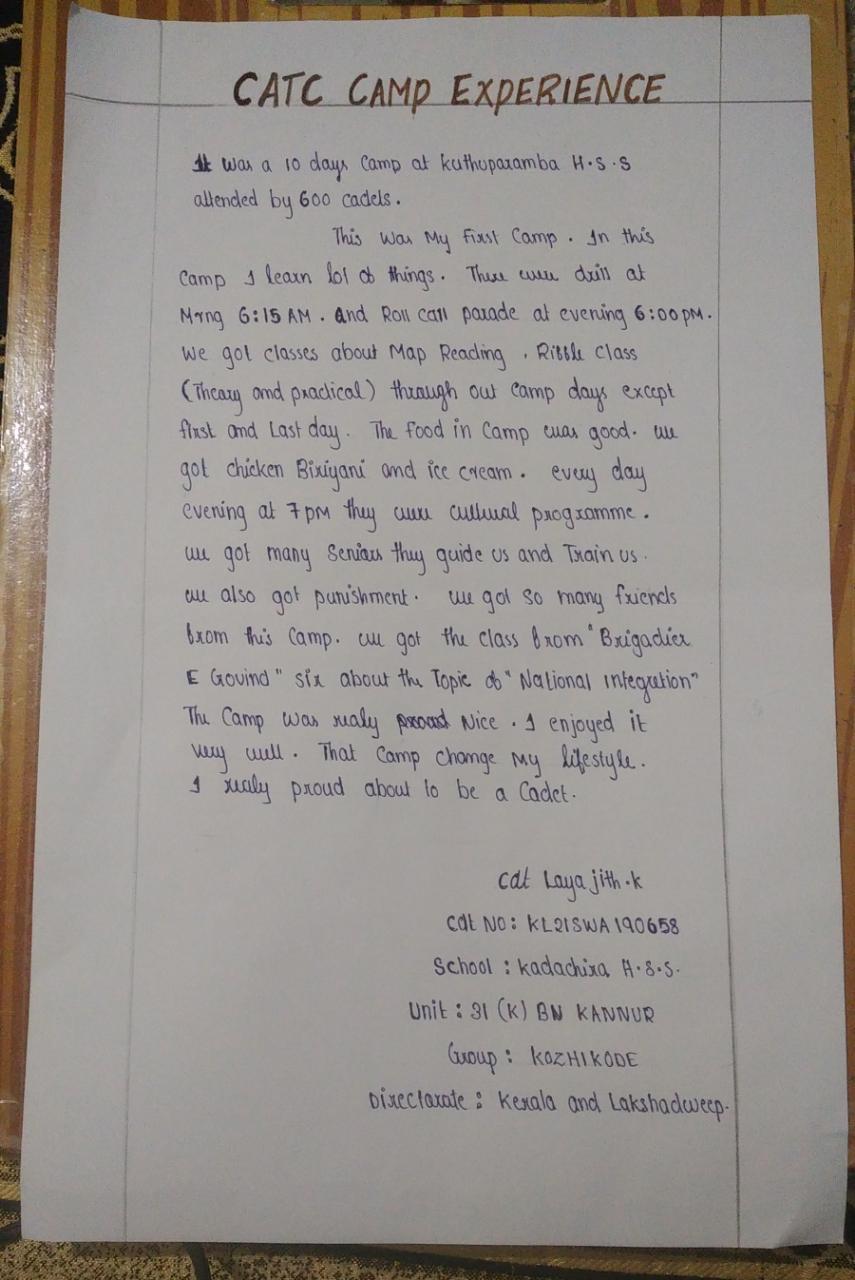 CATC CAMP EXPERIENCE
It Was a 10 days Camp at kuthuparamba H.S.S
attended by 600 cadets.
This Was My First Camp. In this
Camp I learn lot of things. There were drill at
Mrng 6:15 AM. And Roll call parade at evening 6:00 PM.
We got classes about Map Reading, Riffle Class
(Theary and practical) through out Camp days except
first and Last day. The food in Camp was good. we
got chicken Biriyani and ice cream. every day
evening at 7 PM they were cultural programme.
we got many Seniors they guide us and Train us.
we also got punishment. we got so many friends
from this Camp. we got the class from "Brigadier
E Govind" sir about the Topic of "National integration"
The Camp was realy Nice. I enjoyed it
very well. That Camp change My lifestyle.
I realy proud about to be a Cadet.
Cdt Laya jith.k
Cdt NO: KL21SWA190658
School: kadachira H.S.S.
Unit: 31 (K) BN KANNUR
Group: KOZHIKODE
Directorate: Kerala and Lakshadweep.